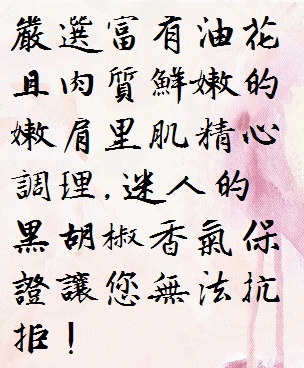 嚴選富有油花
且肉質鮮嫩的
嫩肩里肌精心
調理,迷人的
黑胡椒香氣保
證讓您無法抗
拒!